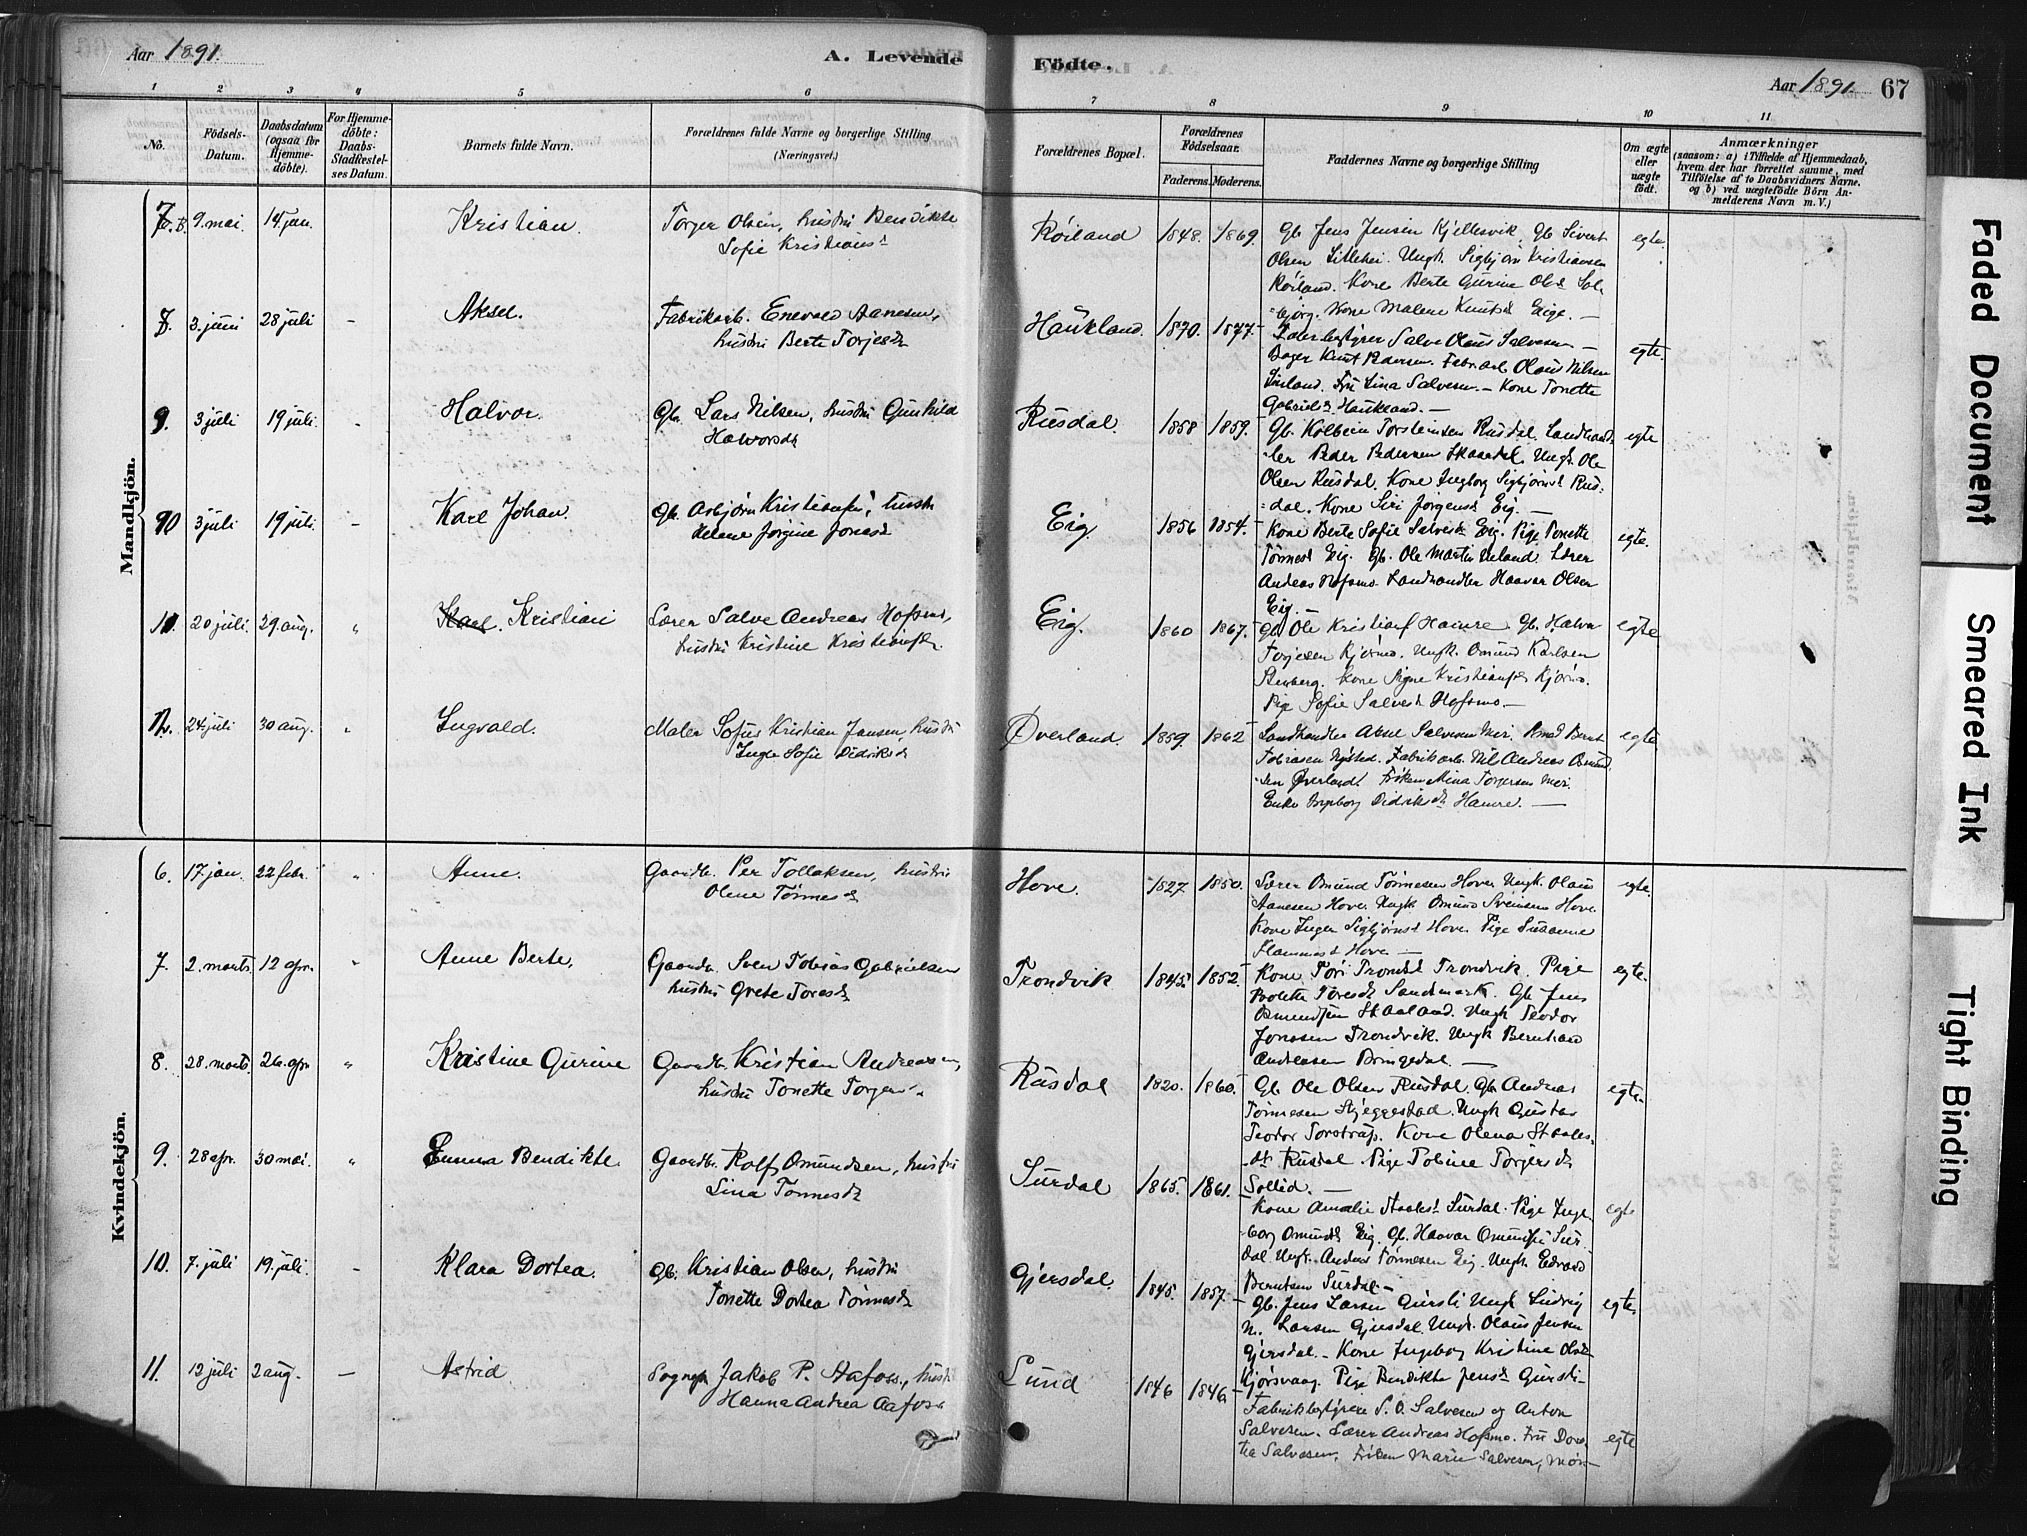 Aar 1891.
A. Levende Födte.
Aar 1891. 67
1 2 3 4 5 6 7 8 9 10 11
No.
Födsels-Datum.
Daabsdatum (ogsaa for Hjemme-döbte).
For Hjemme-döbte: Daabs-Stadfæstel-ses Datum.
Barnets fulde Navn.
Forældrenes fulde Navne og borgerlige Stilling (Næringsvei.)
Forældrenes Bopæl.
Forældrenes Födselsaar.
Faderens. Moderens.
Faddernes Navne og borgerlige Stilling
Om ægte eller uægte födt.
Anmærkninger
(saasom: a) i Tilfælde af Hjemmedaab, hvem der har forrettet samme, med Tilföielse af to Daabsvidners Navne. og b) ved uægtefödte Börn An-melderens Navn m. V.)
Mandkjön.
7. 9. mai 14. jun. Kristian. Torger Olsen, hustru Bendikte
Sofie Kristians d
Röiland 1848. 1869. Gb. Jens Jensen Kjellesvik, Gb. Sivert
Olsen Lillehei. Ungk. Sigbjörn Kristiansen
Röiland. Kone Berte Gurine Ols d Sol-
björg. Kone Malene Knuts d Eige. —
egte.
8. 3. juni 28 juli - Aksel. Fabrikarb. Enevald Aanesen,
hustru Berte Torjesd.
Haukland. 1870. 1877. Salve Olaus Salvesen —
Bager Knut Pedersen. Fabr.arb. Olaus Nilsen
Fru Lina Salvesen. — Kone Tonette
Gabriels d. Haukland. —
egte.
9. 3 juli 19 juli. - Halvor. Gb. Lars Nilsen, hustru Gunhild
Halvorsd.
Rusdal. 1858 1859. Gb. Kolbein Torsteinsen Rusdal. Landhand-
ler Peder Pedersen Skaaedal. Ungk. Ole
Olsen Rusdal. Kone Ingborg Sigbjörns d Rus-
dal. Kone Siri Jörgens d Eig. —
egte
10 3 juli 19 juli. - Karl Johan. Gb. Asbjörn Kristiansen, hustru
Helene Jörgine Jonasd.
Eig 1856 1854. Kone Berte Sofie Salves d. Eig. Pige Tonette
Tönnes d Eig. Gb. Ole Martin Ueland. Lærer
Andreas Hofsmo. Landhandler Haavar Olsen
Eig. —
egte.
11. 20 juli. 29. aug. " Kristian Lærer Salve Andreas Hofsmo,
hustru Kristine Kristiansd.
Eig. 1860 1867. Gb. Ole Kristians. Hamre. Gb. Halvor
Torjesen Kjörmo. Ungk. Omund Karlsen
Stenberg. Kone Signe Kristians d Kjörmo.
Pige Sofie Salves d Hofsmo —
egte
12. 24. juli 30 aug. " Ingvald. Maler Sofus Kristian Jansen, hustru
Inger Sofie Didriks d
Överland. 1859. 1862 Landhandler Aksel Salvesen Moi. Bernt
Tobiasen Nysted. Fabrikarb. Nils Andreas Omund-
sen Överland. Fröken Mina Torgersen Moi.
Enke Ingeborg Didriks d Hamre. —
egte
Kvindekjön.
6. 17. jan. 22 febr. " Anne. Gaardb. Per Tollaksen, hustru
Olene Tönnes d
Hove. 1827 1850. Lærer Omund Tönnesen Hove. Ungk. Olaus
Aanesen Hove. Ungk. Omund Sveinsen Hove.
Kone Inger Sigbjörns d Hove. Pige Susanne
Hove —
egte.
7. 2. marts. 12 apr. " Anne Berte, Gaardb. Sven Tobias Gabrielsen
hustru Grete Toresd.
Trondvik 1845. 1852. Kone Tori Tronds d Trondvik. Pige
Bolette Tores d Sandsmark. Gb. Jens
Omundsen Skaaland. Ungk. Teodor
Jonasen Trondvik. Ungk. Bernhard
Andreasen Bringedal. —
egte.
8. 28. marts. 26. apr " Kristine Gurine Gaardb. Kristian Andreasen,
hustru Tonette Torgers d.
Rusdal 1820. 1860. Gb. Ole Olsen Rusdal. Gb. Andreas
Tönnesen Skjeggestad. Ungk. Gustav
Teodor Torstrup. Kone Olena Staales-
dt. Rusdal. Pige Tobine Torgersd.
Sollid. —
egte.
9. 28 apr. 30 mai. " Emma Bendikte. Gaardb. Rolf Omundsen, hustru
Lina Tönnesd.
Surdal 1865. 1861. Kone Amalie Staales d Surdal. Pige Inge-
borg Omunds d Eig. Gb. Haavar Omundsen Sur-
dal. Ungk. Anders Tönnesen Eig. Ungk. Edvard
Berntsen Surdal —
egte
10. 7. juli 19. juli. - Klara Dortea. Gb. Kristian Olsen, hustru
Tonette Dortea Tönnesd.
Gjersdal. 1845. 1857. Gb. Jens Larsen Gursli. Ungk. Ludvig
M. Larsen Gjersdal. Ungk. Olaus Jensen
Gjersdal. — Kone Ingeborg Kristine Ols d
Kjörsvaag. Pige Bendikte Jens d. Gursli —
egte.
11. 12 juli 2 aug. — Astrid Sognepr. Jakob P. Aafoss, hustru
Hanna Andrea Aafoss
Lund 1846 1846. Fabrikbestyrere S. O. Salvesen og Anton
Salvesen. Lærer Andreas Hofsmo. Fru Dor-
tea Salvesen, Fröken Marie Salvesen, Moi —
egte
Faded Document
Smeared Ink
Tight Binding